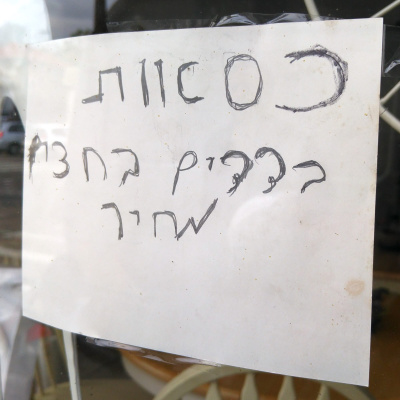 כסאות
בדדים בחצי
מחיר